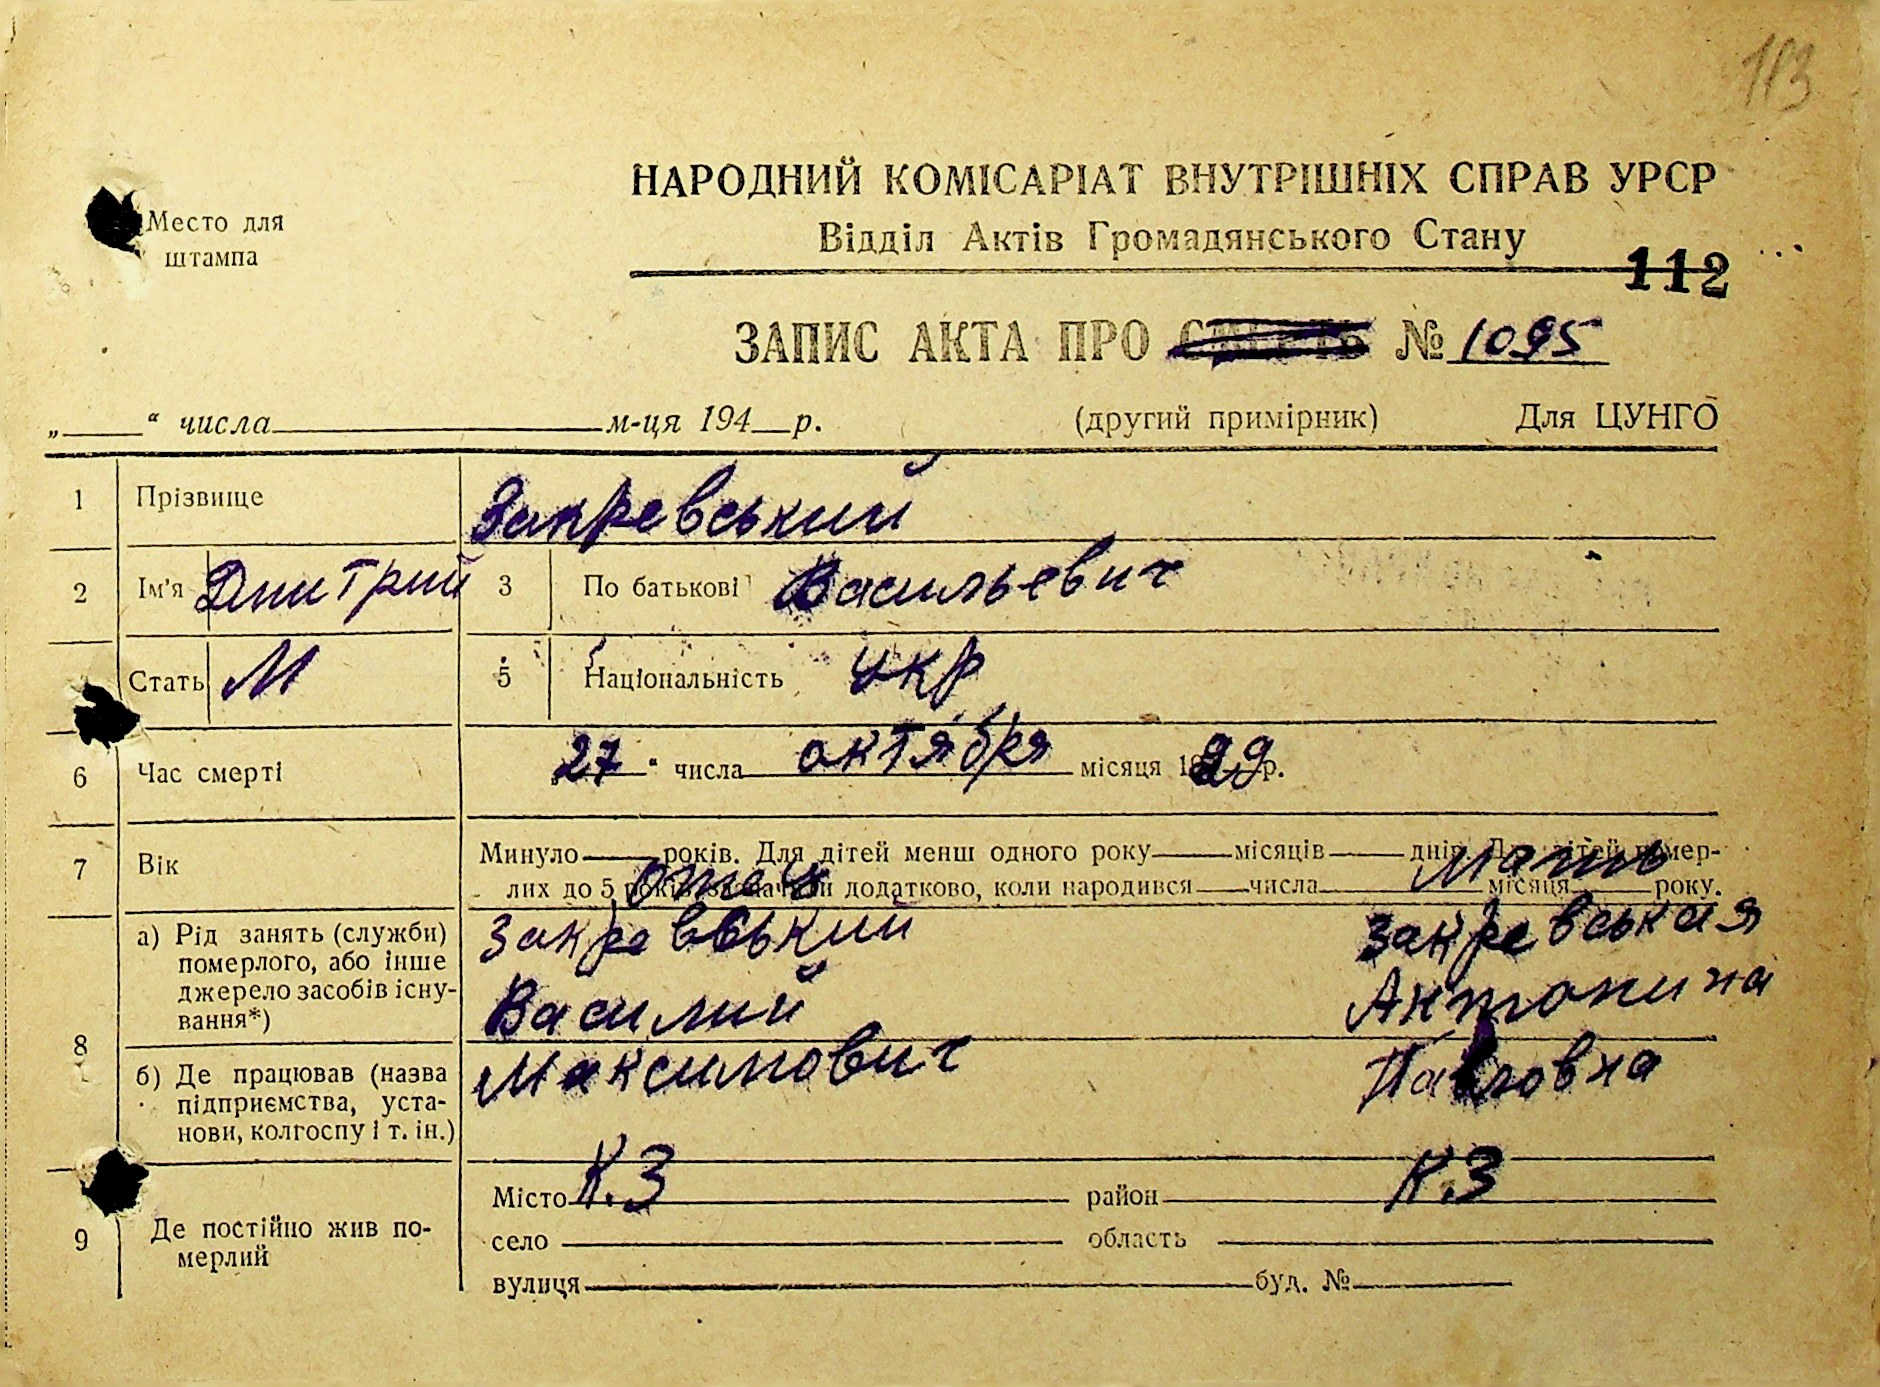 113
Место для
штампа
НАРОДНИЙ КОМІСАРІАТ ВНУТРІШНІХ СПРАВ УРСР
Відділ Актів Громадянського Стану
112
ЗАПИС АКТА ПРО СМЕРТЬ № 1095
„ “ числа м-ця 194 р. (другий примірник) Для ЦУНГО
1 Прізвище Закревський
2 Ім'я Дмитрий 3 По батькові Васильевич
Стать М 5 Національність укр
6 Час смерті 27 “ числа октября місяця 1 29 р.
7 Вік Минуло років. Для дітей менш одного року місяців днів. Для дітей помер-
лих до 5 років зазначити додатково, коли народився числа місяця року.
отец мать
8 а) Рід занять (служби) померлого, або інше джерело засобів існу-вання*)
Закревський Закревськая
Василий Антонина
Максимович Павловна
б) Де працював (назва підприємства, уста-нови, колгоспу і т. ін.)
К.З К.З
9 Де постійно жив по-мерлий
Місто район
село область
вулиця буд. №